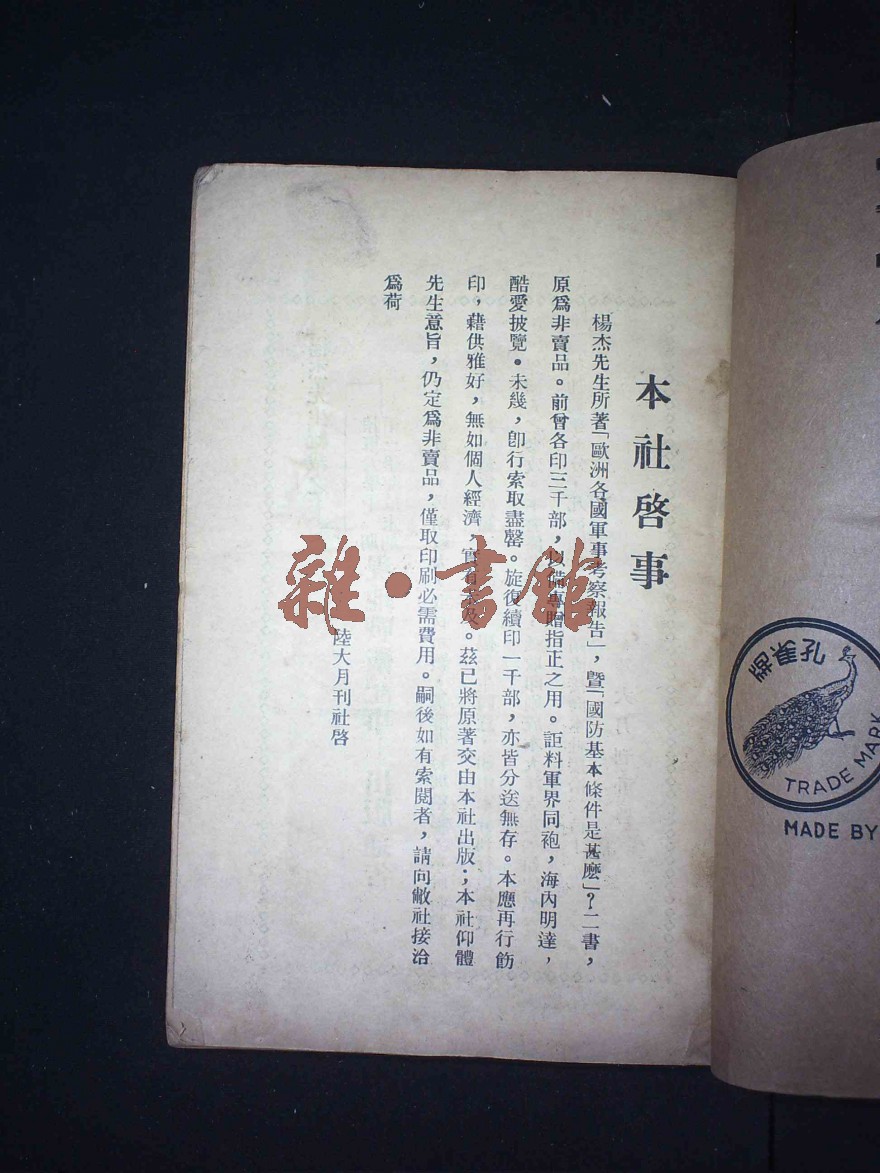 本社啓事
楊杰先生所著「歐洲各國軍事考察報告」,曁「國防基本條件是甚麼」?二書,
原爲非賣品。前曾各印三千部,專贈指正之用。詎料軍界同袍,海內明達,
酷愛披覽。未幾,卽行索取盡罄。旋復續印一千部,亦皆分送無存。本應再行飭
印,藉供雅好,無如個人經濟,實。茲已將原著交由本社出版;本社仰體
先生意旨,仍定爲非賣品,僅取印刷必需費用。嗣後如有索閱者,請向敝社接洽
爲荷
陸大月刊社啓
雜·書館
孔雀牌
TRADE MARK
MADE BY